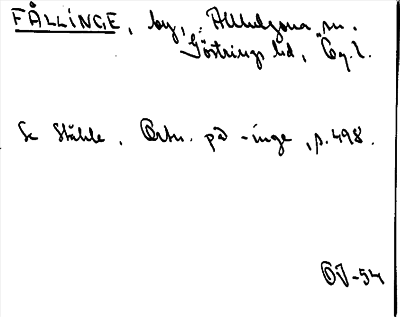 FÅLLINGE, by, Allhelgona sn.
Göstrings hd, Ög. l.
Se Ståhle, Ortn. på -inge, s. 498.
ÖJ-54